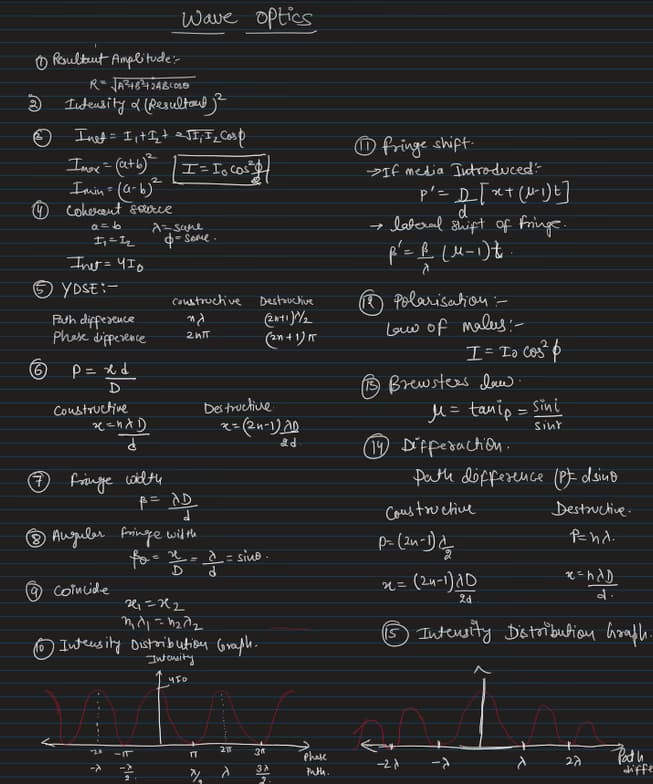 Wave Optics
① Resultant Amplitude:-
R = √A²+B²+2ABcosθ
② Intensity ∝ (Resultant)²
③ Inet = I₁+I₂+2√I₁I₂ Cosϕ
Imax = (a+b)² I = I₀ cos²ϕ/2
Imin = (a-b)²
④ Coherent source
a=b λ=same
I₁=I₂ ϕ=same.
Inet = 4I₀
⑤ YDSE:-
Constructive Destructive
Path difference nλ (2n+1)λ/2
Phase difference 2nπ (2n+1)π
⑥ P = xd/D
Constructive Destructive
x=nλD/d x=(2n-1)λD/2d
⑦ Fringe width
β = λD/d
⑧ Angular fringe width
βθ = x/D = λ/d = sinθ.
⑨ Coincide
x₁=x₂
n₁λ₁=n₂λ₂
⑩ Intensity Distribution Graph.
Intensity
4I0
-2π -π π 2π 3π Phase
-λ -λ/2 λ/2 λ 3λ/2 Path.
⑪ fringe shift.
→If media Introduced:-
P' = D/d [x+(μ-1)t]
→ lateral shift of fringe.
β' = β/λ (μ-1)t.
⑫ Polarisation:-
Law of malus:-
I = I₀ cos²ϕ
⑬ Brewsters law.
μ = tanip = sini/sinr
⑭ Differaction.
Path difference (P)= dsinθ
Constructive Destructive.
P=(2n-1)λ/2 P=nλ.
x=(2n-1)λD/2d x=nλD/d.
⑮ Intensity Distribution Graph.
-2λ -λ λ 2λ Path
diffe